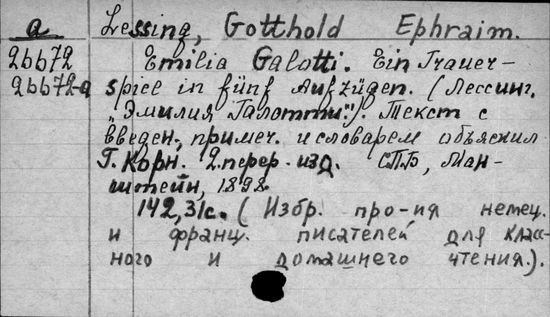 a Lessing, Gotthold Ephraim.
26672 Emilia Galotti. Ein Trauer-
26672-a spiel in fünf Aufzügen. (Лессинг.
„Эмилия Галотти“). Текст с
введен., примеч. и словарем объяснил
Г. Корн. 2. перер. изд. СПБ, Ман-
штейн, 1898.
142,31с. (Избр. про-ия немец.
и франц. писателей для класс-
ного и домашнего чтения.).